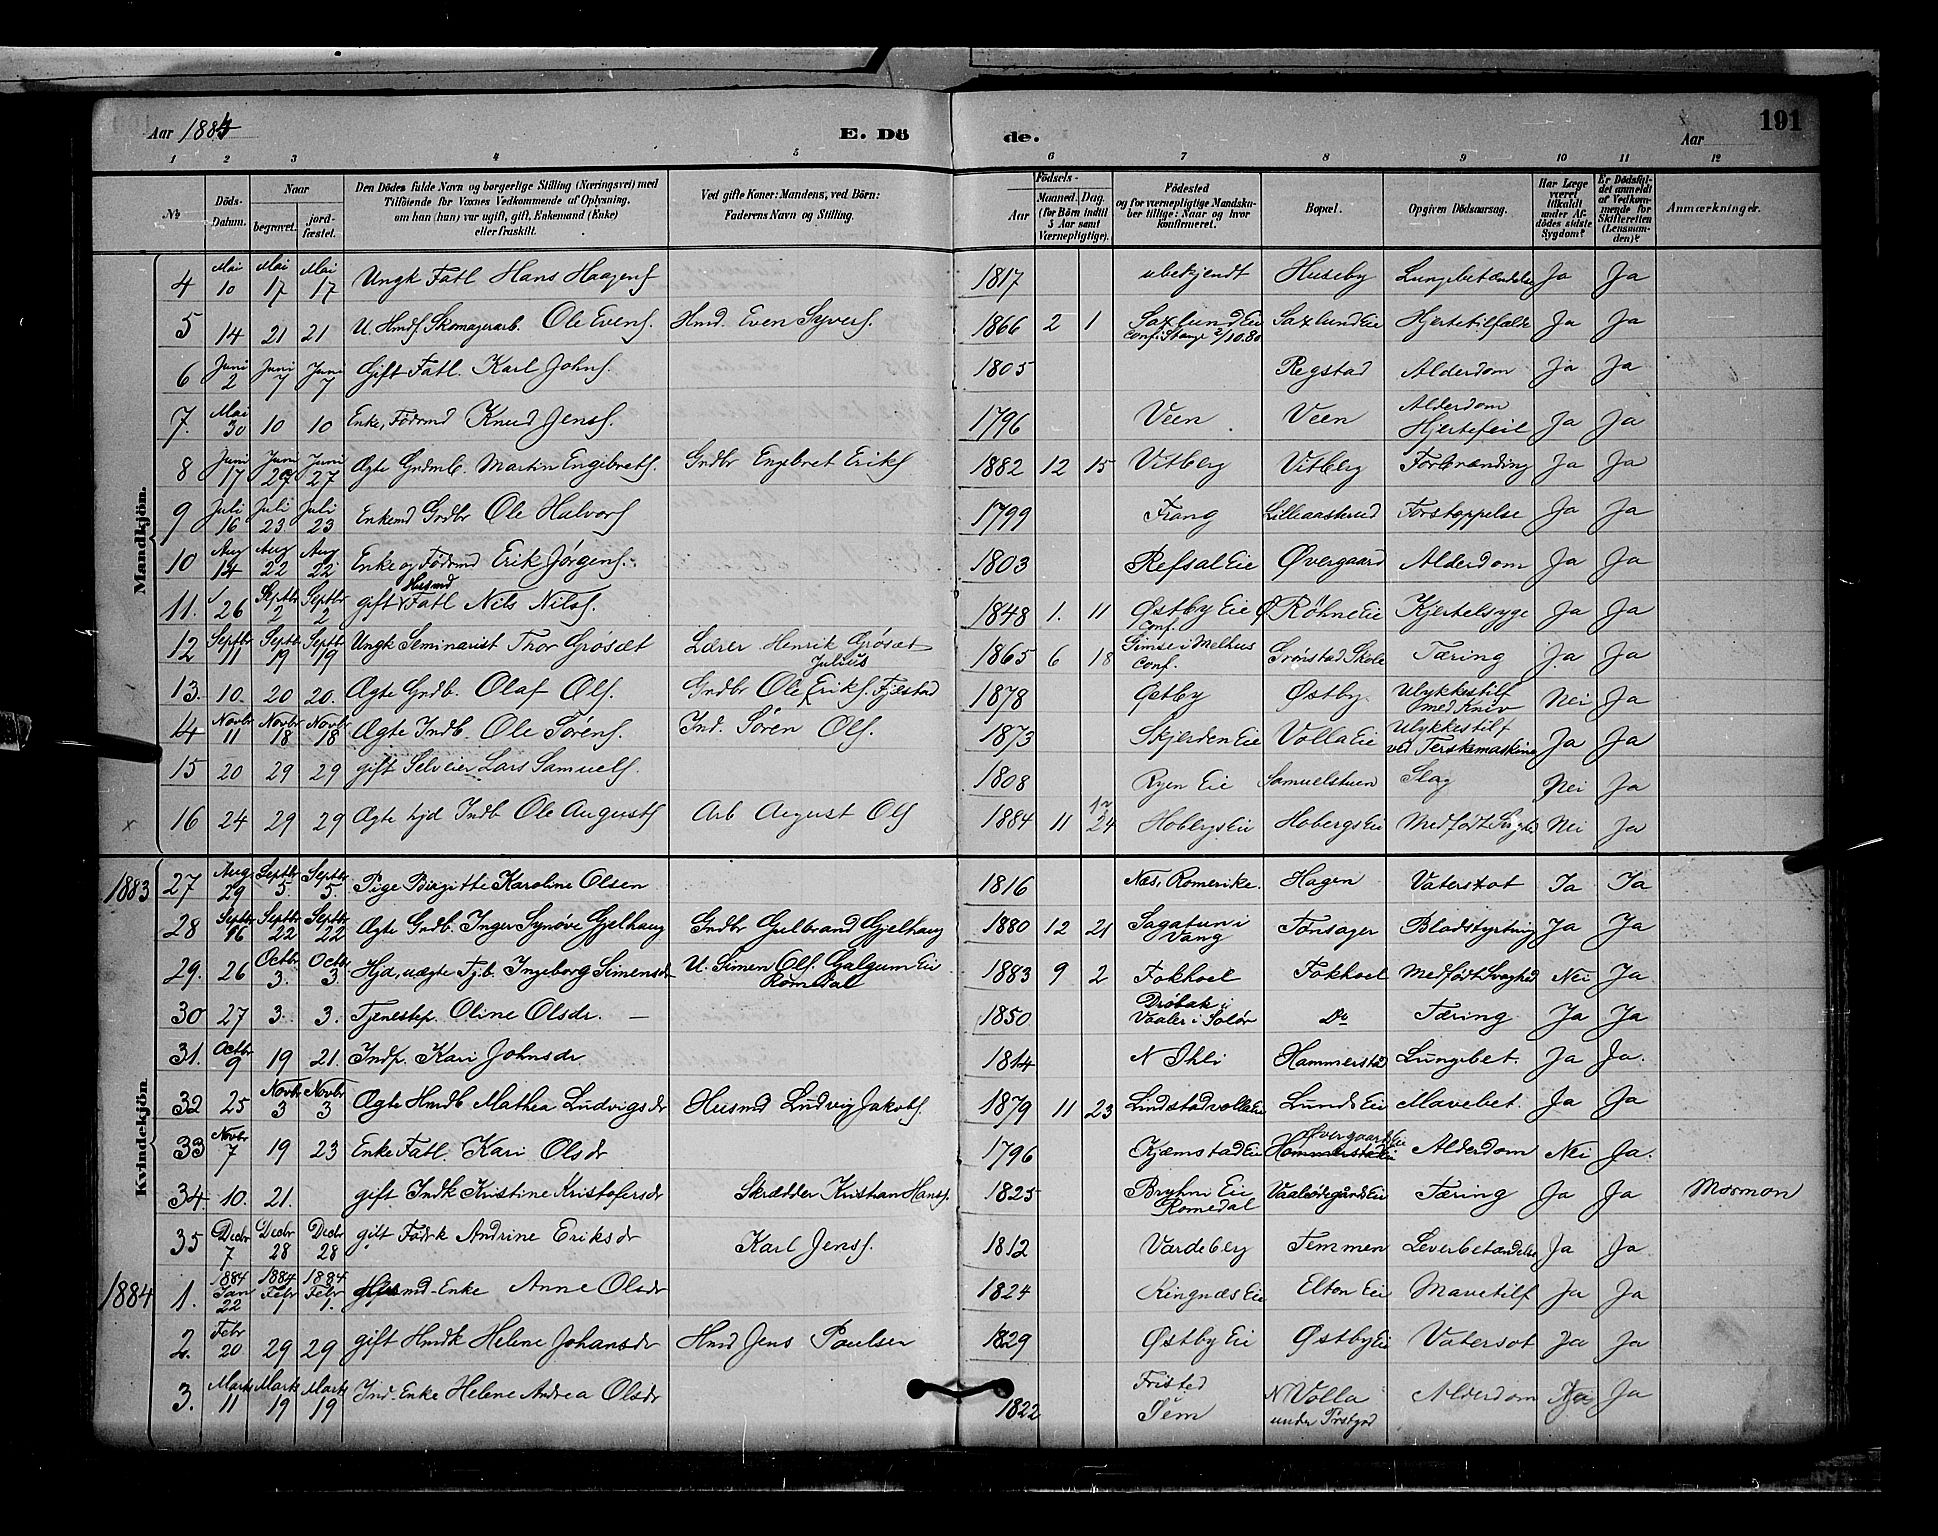 Aar 1884 E. Dö de. Aar 191
1 2 3 4 5 6 7 8 9 10 11 12
№ Döds-Datum. Naar begravet. jord-fæstet. Den Dödes fulde Navn og borgerlige Stilling (Næringsvei) med Tilföiende for Voxnes Vedkommende af Oplysning, om han (hun) var ugift, gift, Enkemand (Enke) eller fraskilt. Ved gifte Koner: Mandens, ved Börn: Faderens Navn og Stilling. Födsels- Aar Maaned. Dag. (for Börn indtil 5 Aar samt Værnepligtige). Födested og for værnepligtige Mandskaber tillige: Naar og hvor konfirmeret. Bopæl. Opgiven Dödsaarsag. Har Læge været tilkaldt under Afdödes sidste Sygdom? Er Dödsfaldet anmeldt af Vedkommende for Skifteretten (Lensmanden)? Anmærkninger.
Mandkjön.
4 Mai 10 Mai 17 Mai 17 Ungk Fatl Hans Haagens. 1817 ubekjendt Huseby Lungebetændelse Ja Ja
5 14 21 21 U. Hmds. Skomagerarb. Ole Evens. Hmd. Even Syvers. 1866 2 1 Saxlund Eie Conf. Stange 2/10.80 Saxlund Eie Hjertetilfælde Ja Ja
6 Juni 2 Juni 7 Juni 7 Gift Fatl. Karl Johns. 1805 Regstad Alderdom Ja Ja
7. Mai 30 10 10 Enke, Födrmd Knud Jens. 1796 Veen Veen Alderdom Hjertefeil Ja Ja
8 Juni 17 Juni 27 Juni 27 Ægte Grdmb. Martin Engebrets. Grdbr Engebret Eriks. 1882 12 15 Vitberg Vitberg Forbrænding Ja Ja
9 Juli 16 Juli 23 Juli 23 Enkemd Grdbr Ole Halvors. 1799 Frang Lilleaasterud Forstoppelse Ja Ja
10 Aug 14 Aug 22 Aug 22 Enke og Födrmd Erik Jørgens. 1803 Refsal Eie Øvergaard Alderdom Ja Ja
11. 26 Septbr 2 Septbr 2 gift Husmd Fatl Nils Nils. 1848 1. 11 Østby Eie Conf. Ø Røhne Eie Kjertelsyge Ja Ja
12 Septbr 11 Septbr 19 Septbr 19 Ungk Seminarist Thor Grøsæt Lærer Henrik Grøsæt 1865 6 18 Gimse i Melhus Conf. Grønstad Skole Tæring Ja Ja
13. 10. 20 20. Ægte Grdb. Olaf Ols. Grdbr Ole Julius Eriks. Fjelstad 1878 Østby Østby. Ulykkestilf med Kniv Nei Ja
14 Novbr 11 Novbr 18 Novbr 18 Ægte Indb. Ole Sørens. Ind. Søren Ols. 1873 Skjerden Eie Volla Eie Ulykkestilf ved Terskemaskine Ja Ja
15 20 29 29 gift Selveier Lars Samuels. 1808 Ryen Eie Samuelstuen Slag Nei Ja
x 16 24 29 29 Ægte hjd Indb Ole Augusts Arb August Ols 1884 11 24 Hobergs Eie Hobergs Eie Medfödt Svaghed Nei Ja
Kvindekjön.
1883 27 Aug 29 Septbr 5 Septbr 5 Pige Birgitte Karoline Olsen 1816 Næs, Romerike. Hagen Vatersot Ja Ja
28 Septbr 16 Septbr 22 Septbr 22 Ægte Grdb. Inger Synøve Gjelhaug Grdbr Gulbrand Gjelhaug 1880 12 21 Sagatun i Vang Tønsager Blodstyrtning Ja Ja
29. 26 Octbr 3. Octbr 3. Hjd, uægte Tj.b. Ingeborg Simensdr U. Simen Ols. Galgum Eie Romedal 1883 9 2 Fokhoel Fokhoel Medfödt Svaghed Nei Ja
30 27 3. 3. Tjenestep. Oline Olsdr. — 1850 Drøbak i Vaaler i Solør Do Tæring Ja Ja
31. Octbr 9 19 21. Indp. Kari Johnsdr 1814 N Ihli Hammerstad Lungebet. Ja Ja.
32 25 Novbr 3 Novbr 3 Ægte Hmdb Mathea Ludvigsdr Husmd Ludvig Jakobs. 1879 11 23 Lindstadvolla Eie Lunds Eie Mavebet. Ja Ja
33 Novbr 7 19 23 Enke Fatl. Kari Olsdr 1796 Kjæmstad Eie Øvergaard Eie Alderdom Nei Ja.
34. 10. 21. gift Indk Kristine Kristofersdr Skrædder Kristian Hans. 1825 Bryhni Eie Romedal Vaalødegårds Eie Tæring Ja Ja Mormon
35 Decbr 7 Decbr 28 Decbr 28 gift Födrk Andrine Eriksdr Karl Jens. 1812 Vardeberg Temmen Leverbetændelse Ja Ja
1884 1. 1884 Jan 22 1884 Febr 1 1884 Febr 1. Husmd-Enke Anne Olsdr 1824 Ringnæs Eie Elton Eie Mavetilf Ja Ja
2. Febr 20 29 29 gift Hmdk Helene Johansdr Hmd Jens Paulsen 1829 Østby Eie Østby Eie Vatersot Ja Ja
3. Marts 11 Marts 19 Marts 19 Ind-Enke Helene Andrea Olsdr 1822 Fristed i Sem N Volla under Prstgrd Alderdom Ja